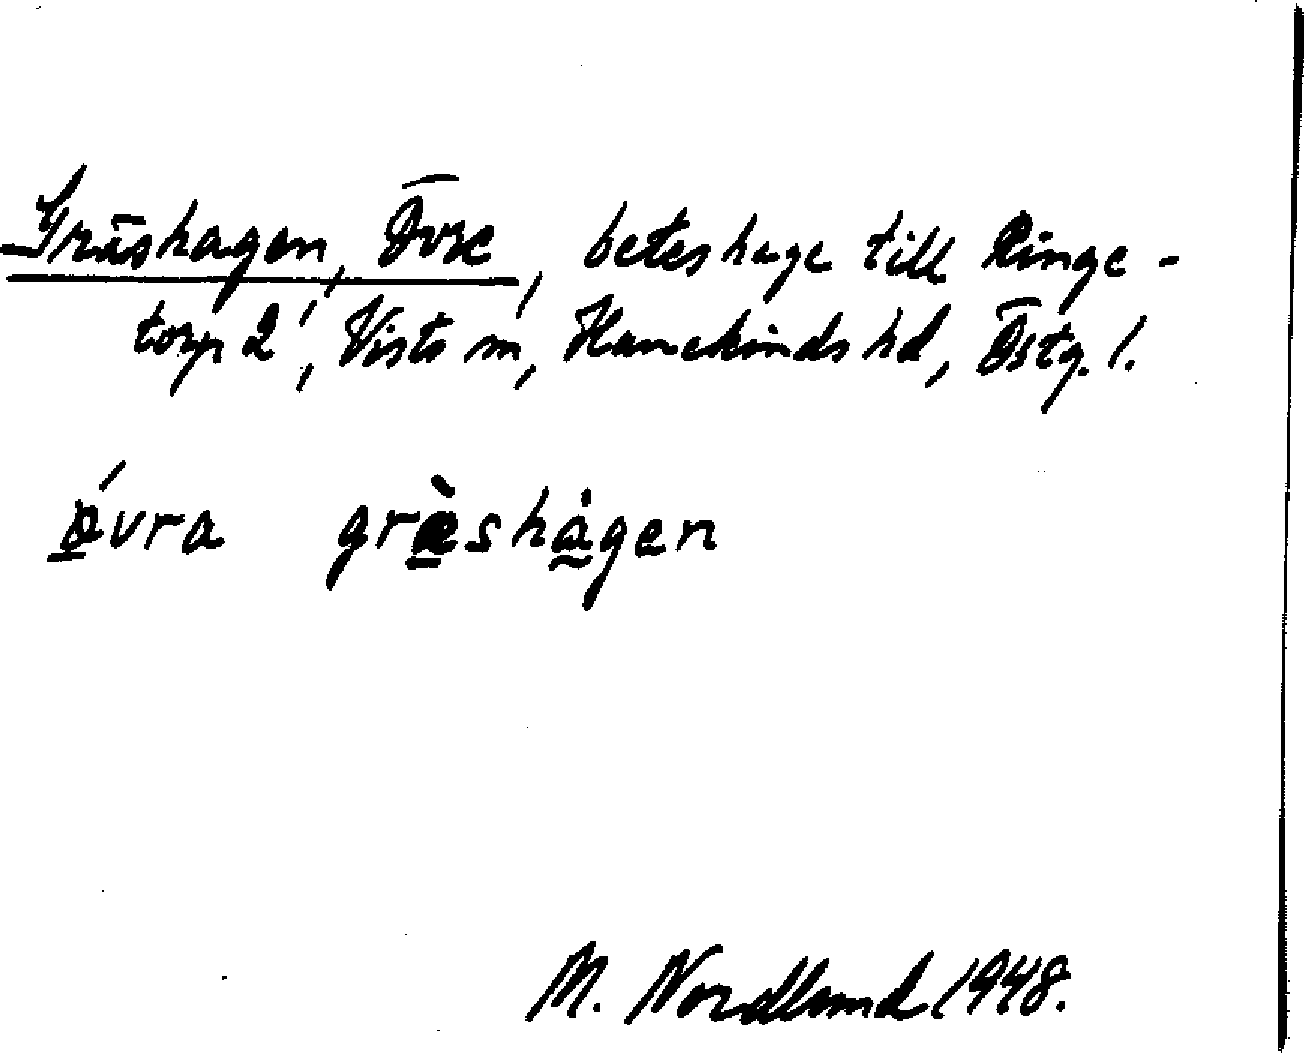 Gräshagen, Övre, beteshage till Ringe-
torp 2¹, Vists sn, Hanekinds hd, Östg. l.
ávra græ̀shågen
M. Nordland 1948.